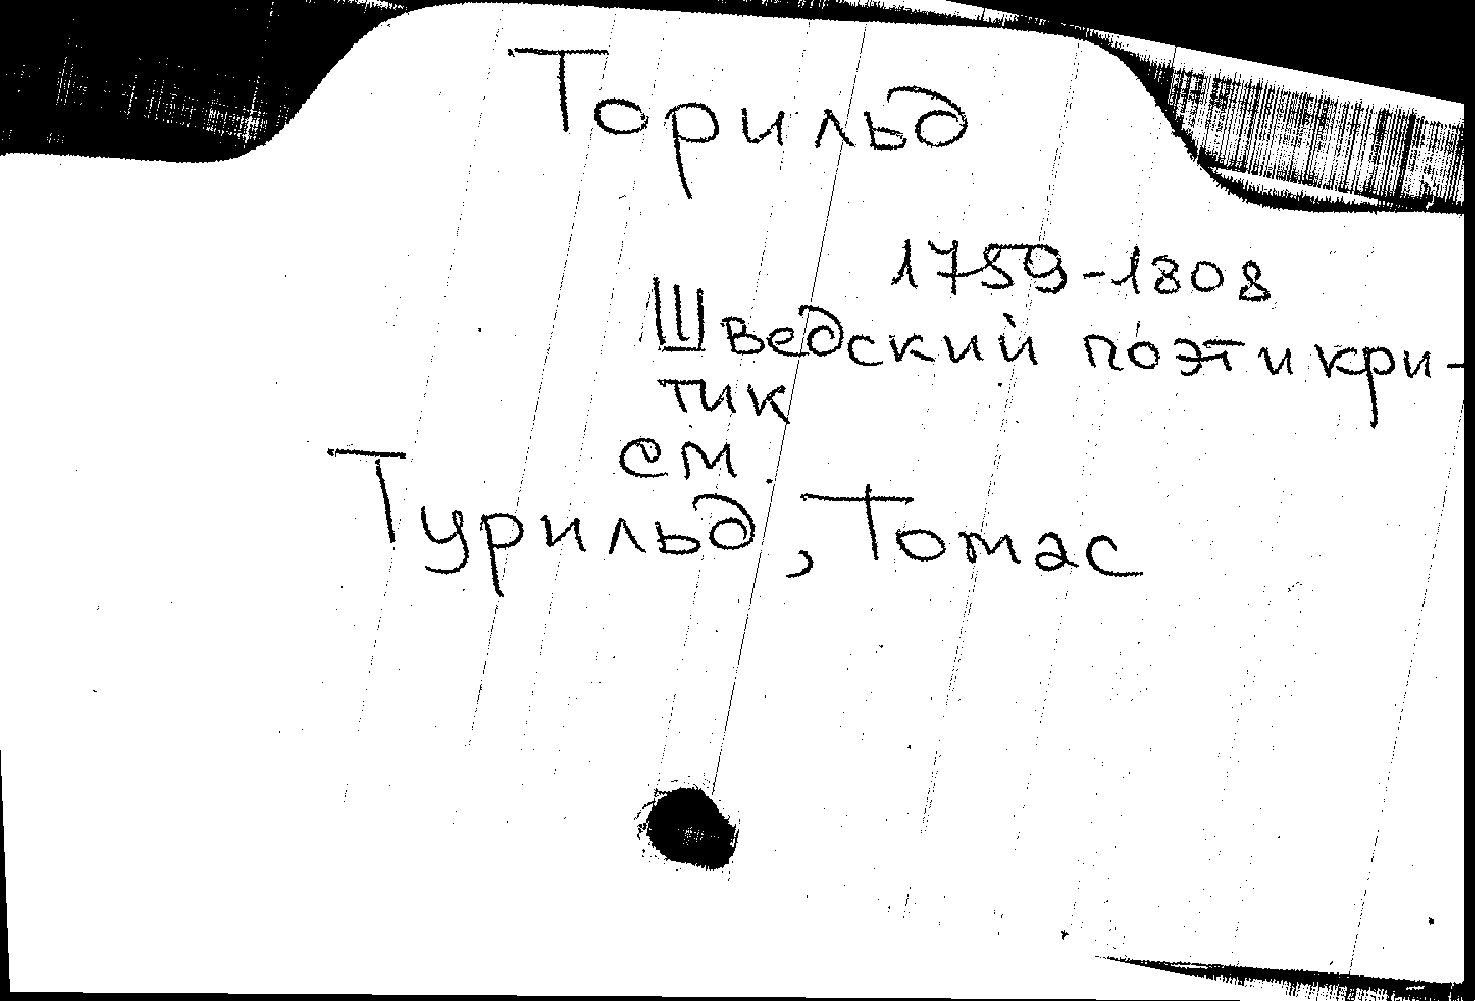 Торильд
1759-1808
Шведский поэт и кри-
тик
см.
Турильд, Томас